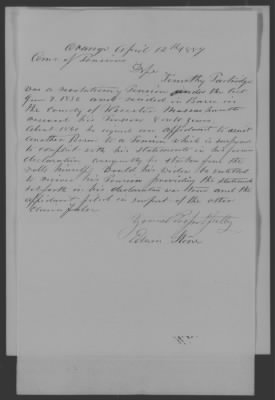 Orange April 12th 1887
Com. of Pensions
Timothy Partridge
was a revolutionary Pension under the act
June 7 1832 and resided in Barre in
the County of Worcester Massachusetts
received his Pension
About 1840 he signed an affidavit to assist
another Person to a Pension which is supposed
to conflict with his Statements in his former
declaration consequently he stricken from the
rolls himself. Would his Widow be entitled
to receive his Pension providing the statements
set forth in his declaration was true and the
affidavit filed in support of the other
Yours Respectfully
Edwin Stone